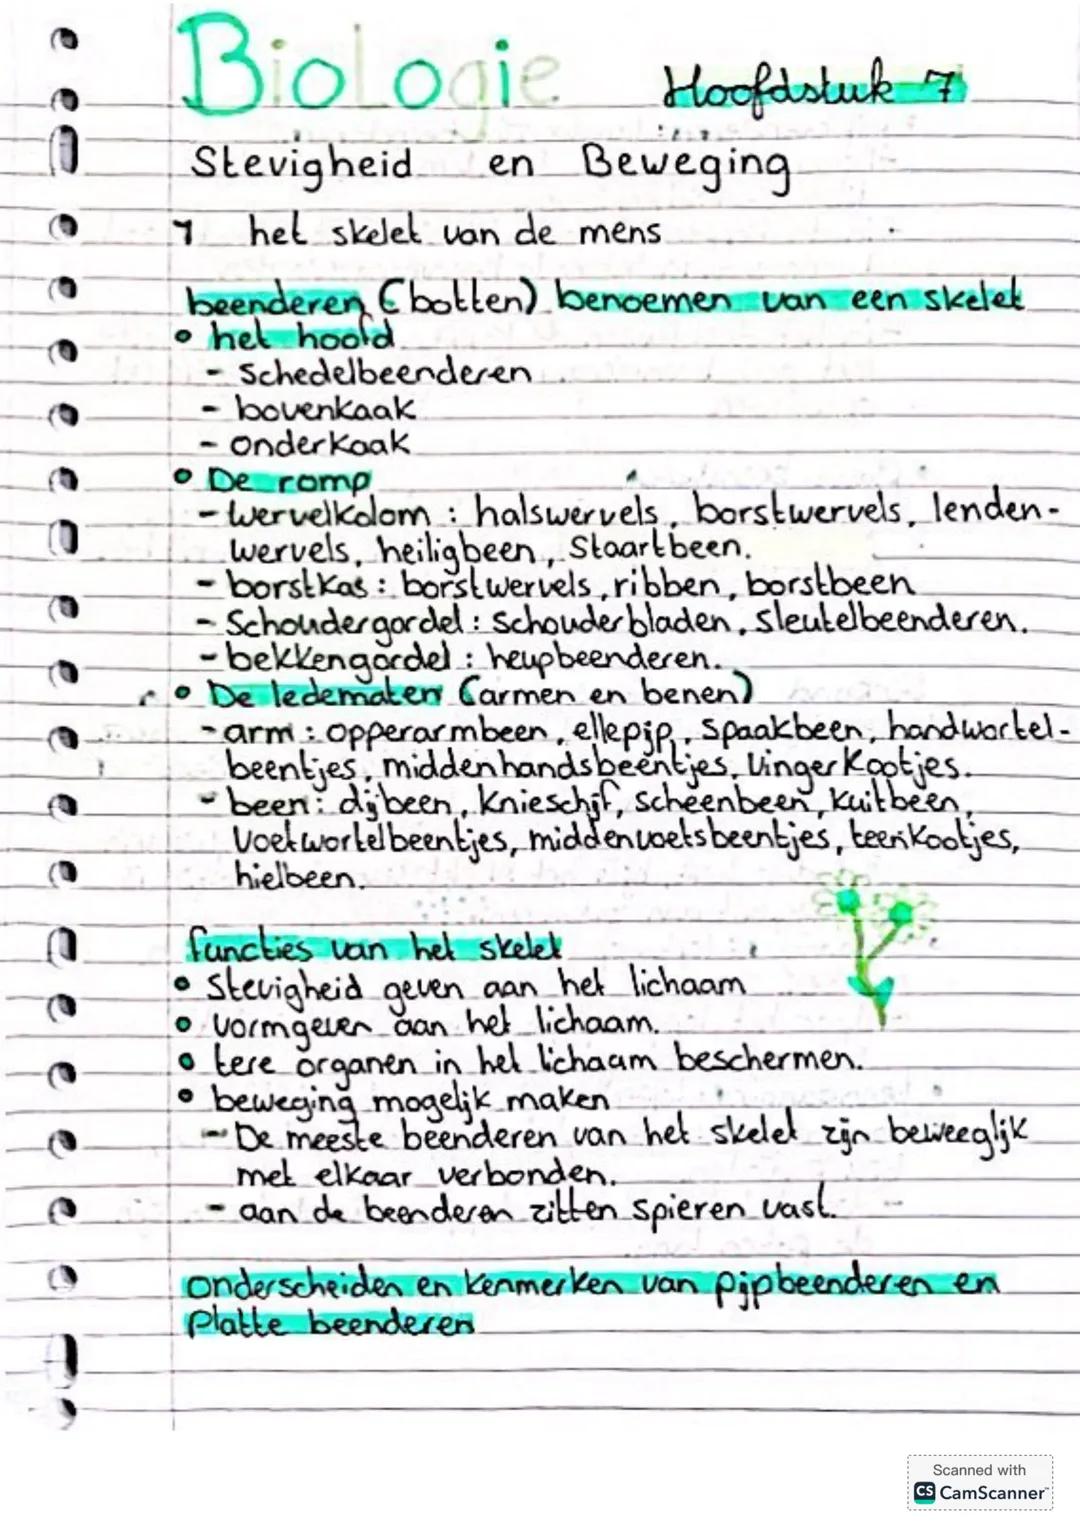 Biologie Hoofdstuk 7
Stevigheid en Beweging
1 het skelet van de mens
beenderen (botten) benoemen van een skelet
• het hoofd
- Schedelbeenderen
- bovenkaak
- onderkaak
• De romp
- wervelkolom : halswervels, borstwervels, lenden-
wervels, heiligbeen, Staartbeen.
- borstkas : borstwervels, ribben, borstbeen
- Schoudergordel : Schouderbladen, sleutelbeenderen.
- bekkengordel : heupbeenderen.
• De ledematen (armen en benen)
- arm : opperarmbeen, ellepijp, spaakbeen, handwortel-
beentjes, middenhandsbeentjes, Vingerkootjes.
- been : dijbeen, Knieschijf, scheenbeen, Kuitbeen,
Voetwortelbeentjes, middenvoetsbeentjes, teenkootjes,
hielbeen.
functies van het skelet
• Stevigheid geven aan het lichaam
• Vormgeven aan het lichaam.
• tere organen in het lichaam beschermen.
• beweging mogelijk maken
- De meeste beenderen van het skelet zijn beweeglijk
met elkaar verbonden.
- aan de beenderen zitten spieren vast.
onderscheiden en Kenmerken van pijpbeenderen en
Platte beenderen
Scanned with
CS CamScanner